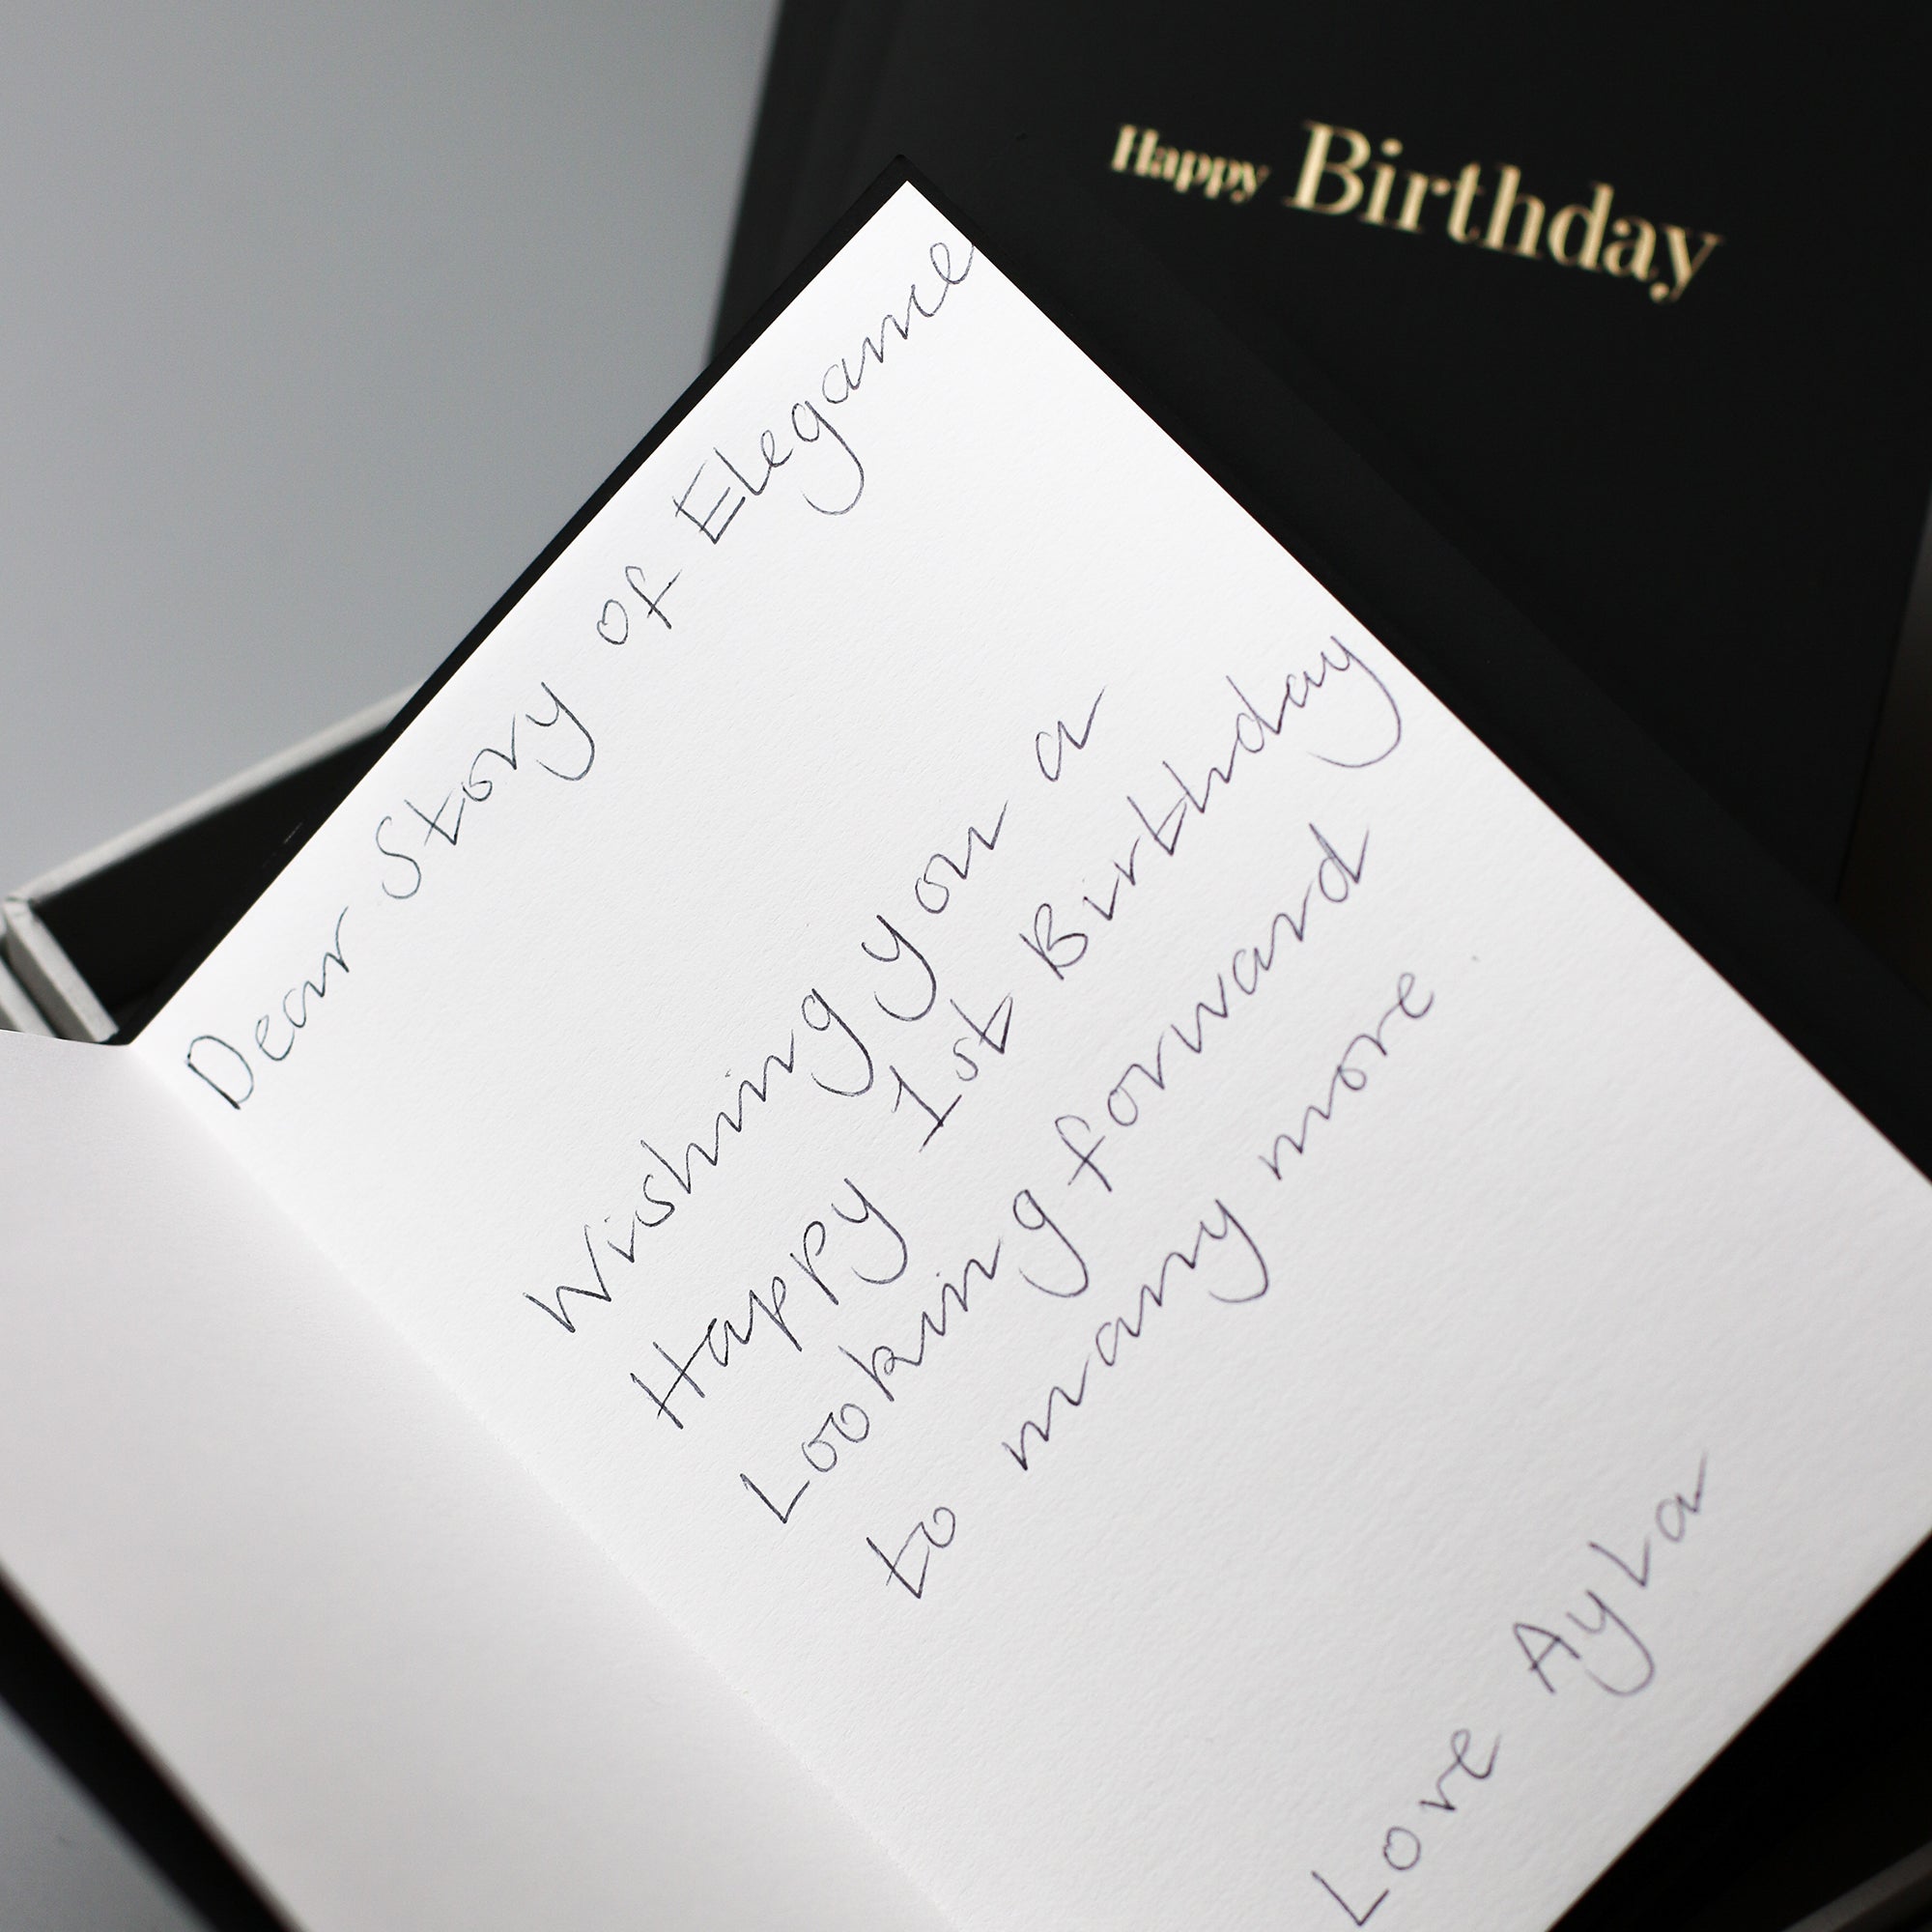 Happy Birthday
Dear Story of Elegance
Wishing you a
Happy 1st Birthday
Looking forward
to many more.
Love Ayla